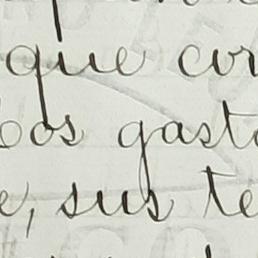 que cor
los gasto
e, sus te